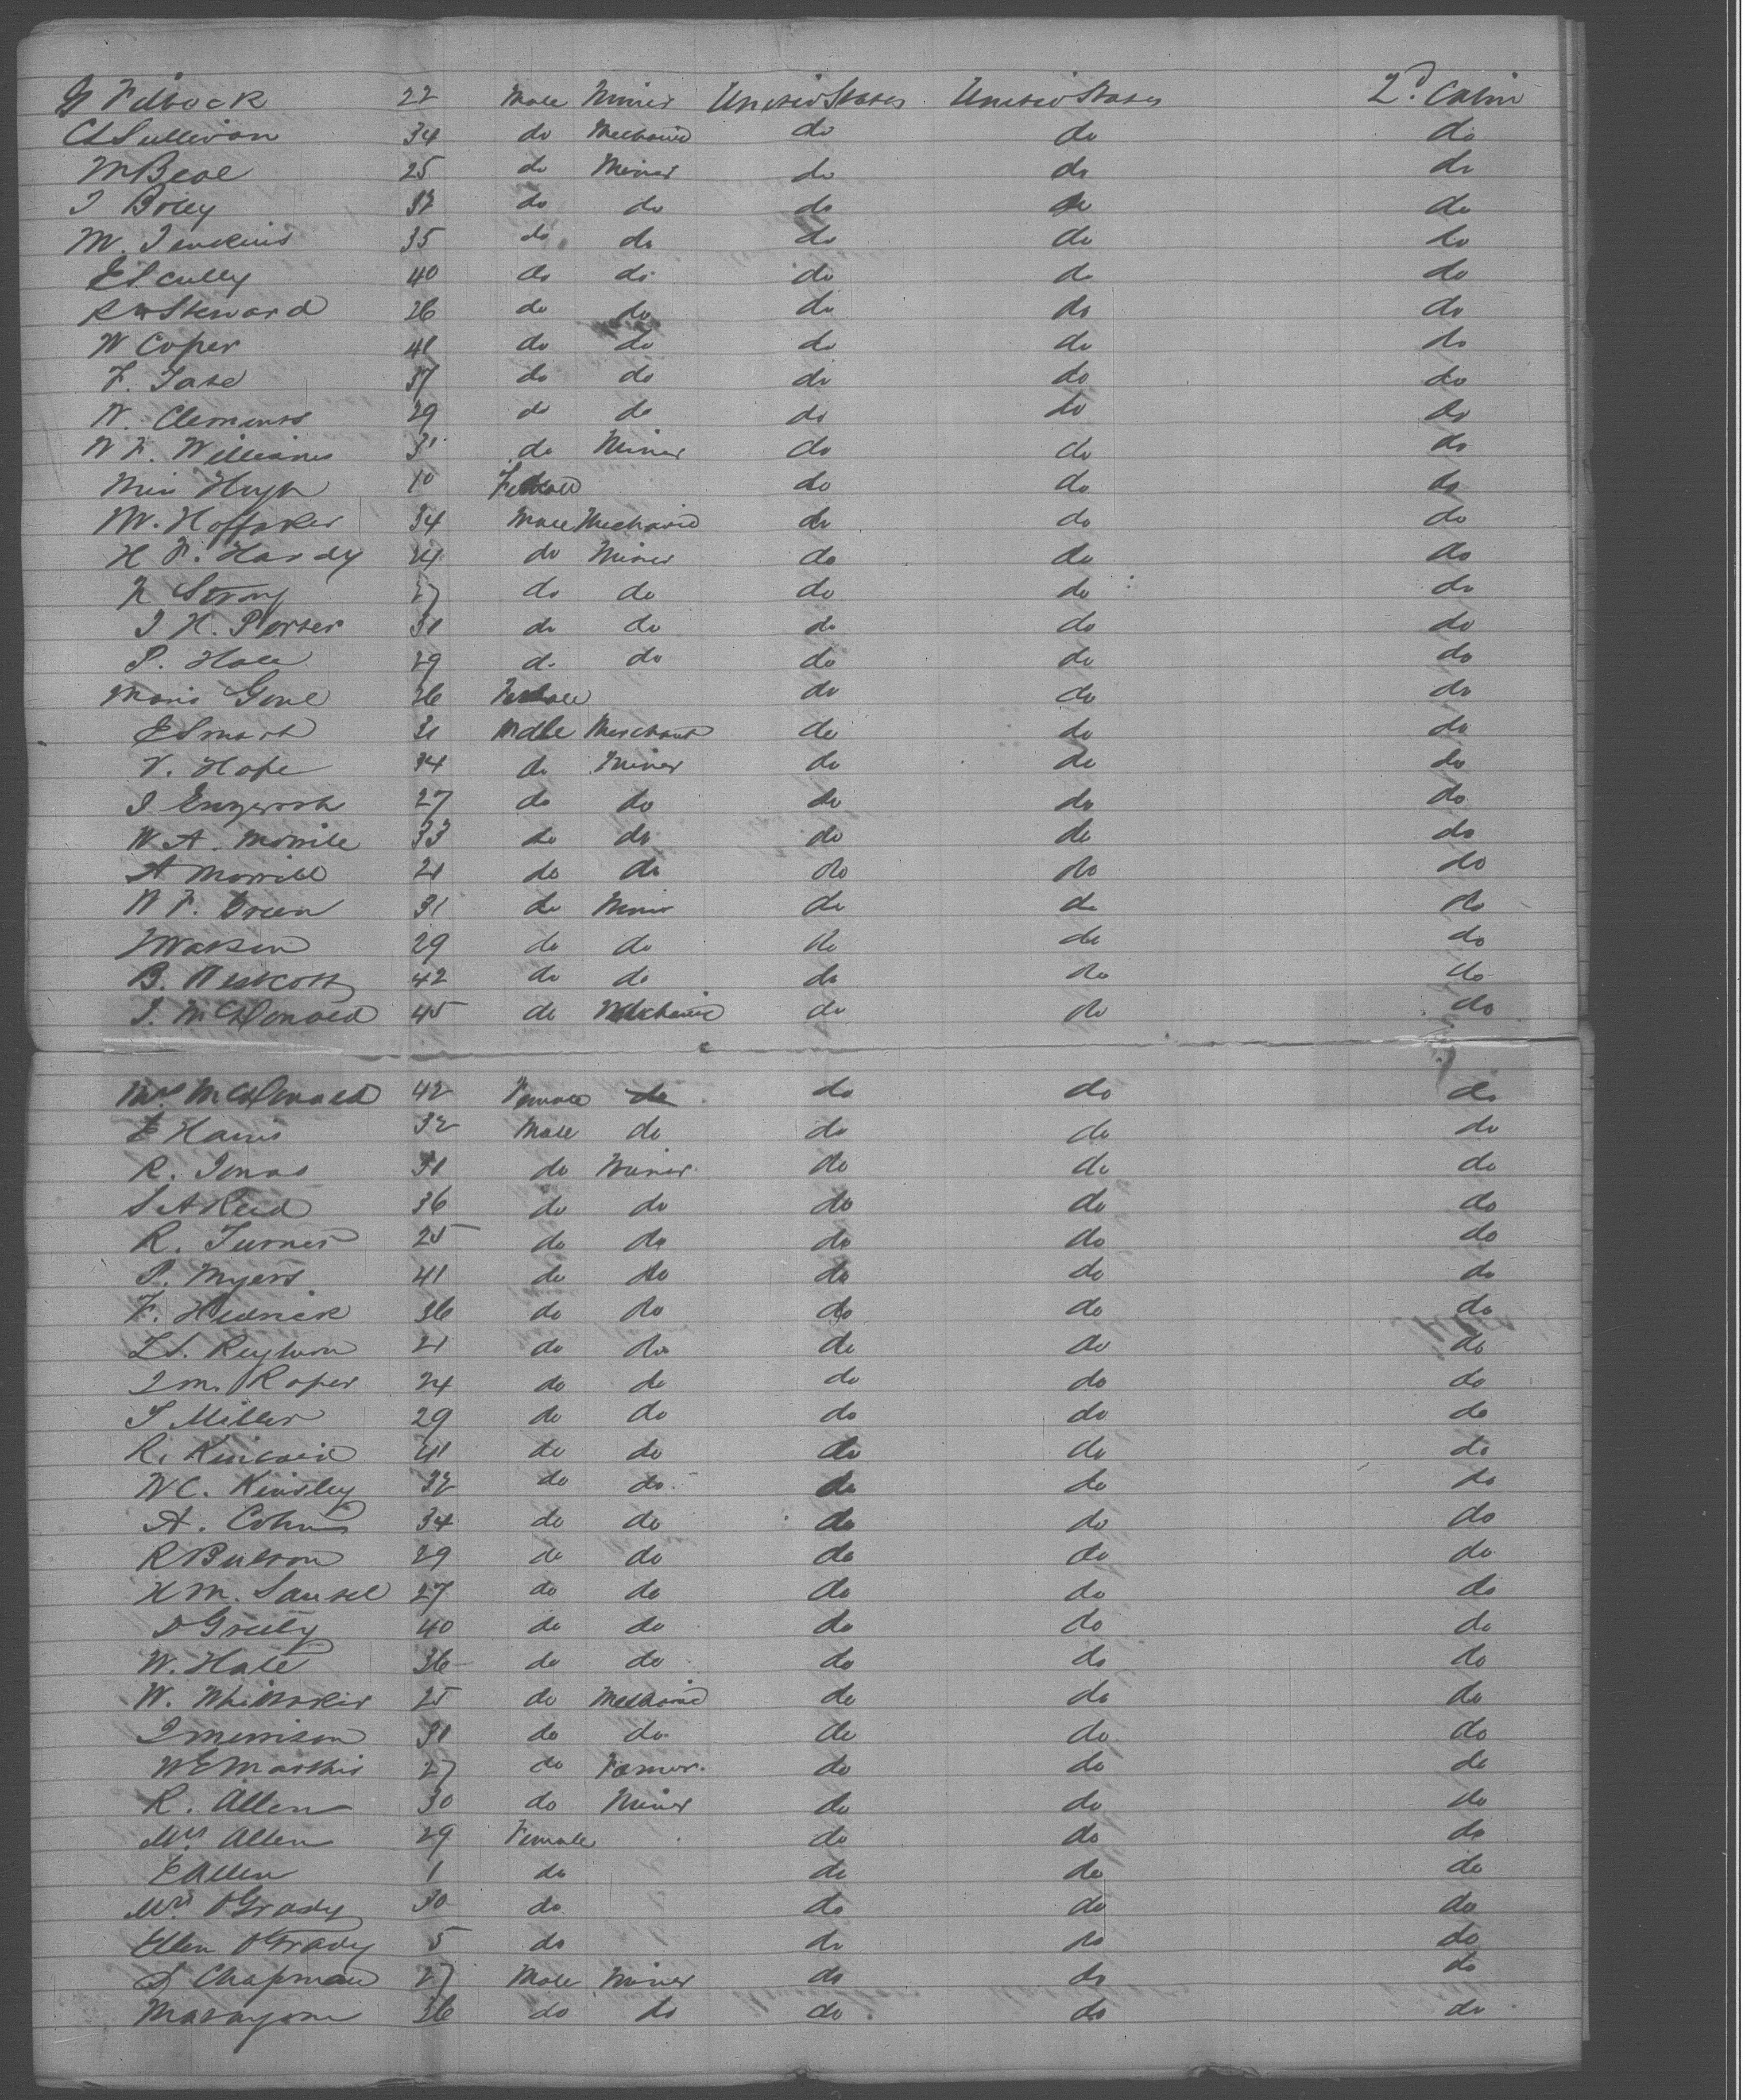 G Filbock 22 Male Miner United States United States 2d. Cabin
C L Sullivan 34 do Mechanic do do do
M Beal 25 do Miner do do do
J Boley 32 do do do do do
M. Jenkins 35 do do do do do
E Scully 40 do do do do do
R Steward 26 do do do do do
W Coper 41 do do do do do
F. Tate 37 do do do do do
W. Clements 29 do do do do do
W F. Williams 31 do Miner do do do
Miss Hugh 10 Female do do do
M. Hoffsker 34 Male Mechanic do do do
H F. Hardy 24 do Miner do do do
N Strong 27 do do do do do
J H. Porter 31 do do do do do
P. Hall 29 do do do do do
Maris Gove 26 Female do do do
E Smart 31 Male Merchant do do do
V. Hope 34 do Miner do do do
J 27 do do do do do
W A. Morrill 33 do do do do do
A Morrill 21 do do do do do
W F. Green 31 do Miner do do do
J Watson 29 do do do do do
B. Westcott 42 do do do do do
J. McDonald 45 do Mechanic do do do
Mrs McDonald 42 Female do do do do
E Harris 32 Male do do do do
R. Jonas 31 do Miner do do do
S A Reid 36 do do do do do
R. Turner 25 do do do do do
P. Myers 41 do do do do do
F. Hedrick 36 do do do do do
L S. 21 do do do do do
J M. Roper 24 do do do do do
J Miller 29 do do do do do
R. Kincaid 41 do do do do do
W C. Kinsley 32 do do do do do
A. Cohn 34 do do do do do
R Bulson 29 do do do do do
H M. Sausel 27 do do do do do
D Greely 40 do do do do do
W. Hale 36 do do do do do
W. Whittaker 25 do Mechanic do do do
J Morrison 31 do do do do do
W E Mathis 27 do Farmer. do do do
R. Allen 30 do Miner do do do
Mrs Allen 29 Female do do do
E Allen 1 do do do do
Mrs O'Grady 30 do do do do
Ellen O'Grady 5 do do do do
S Chapman 27 Male Miner do do do
36 do do do do do